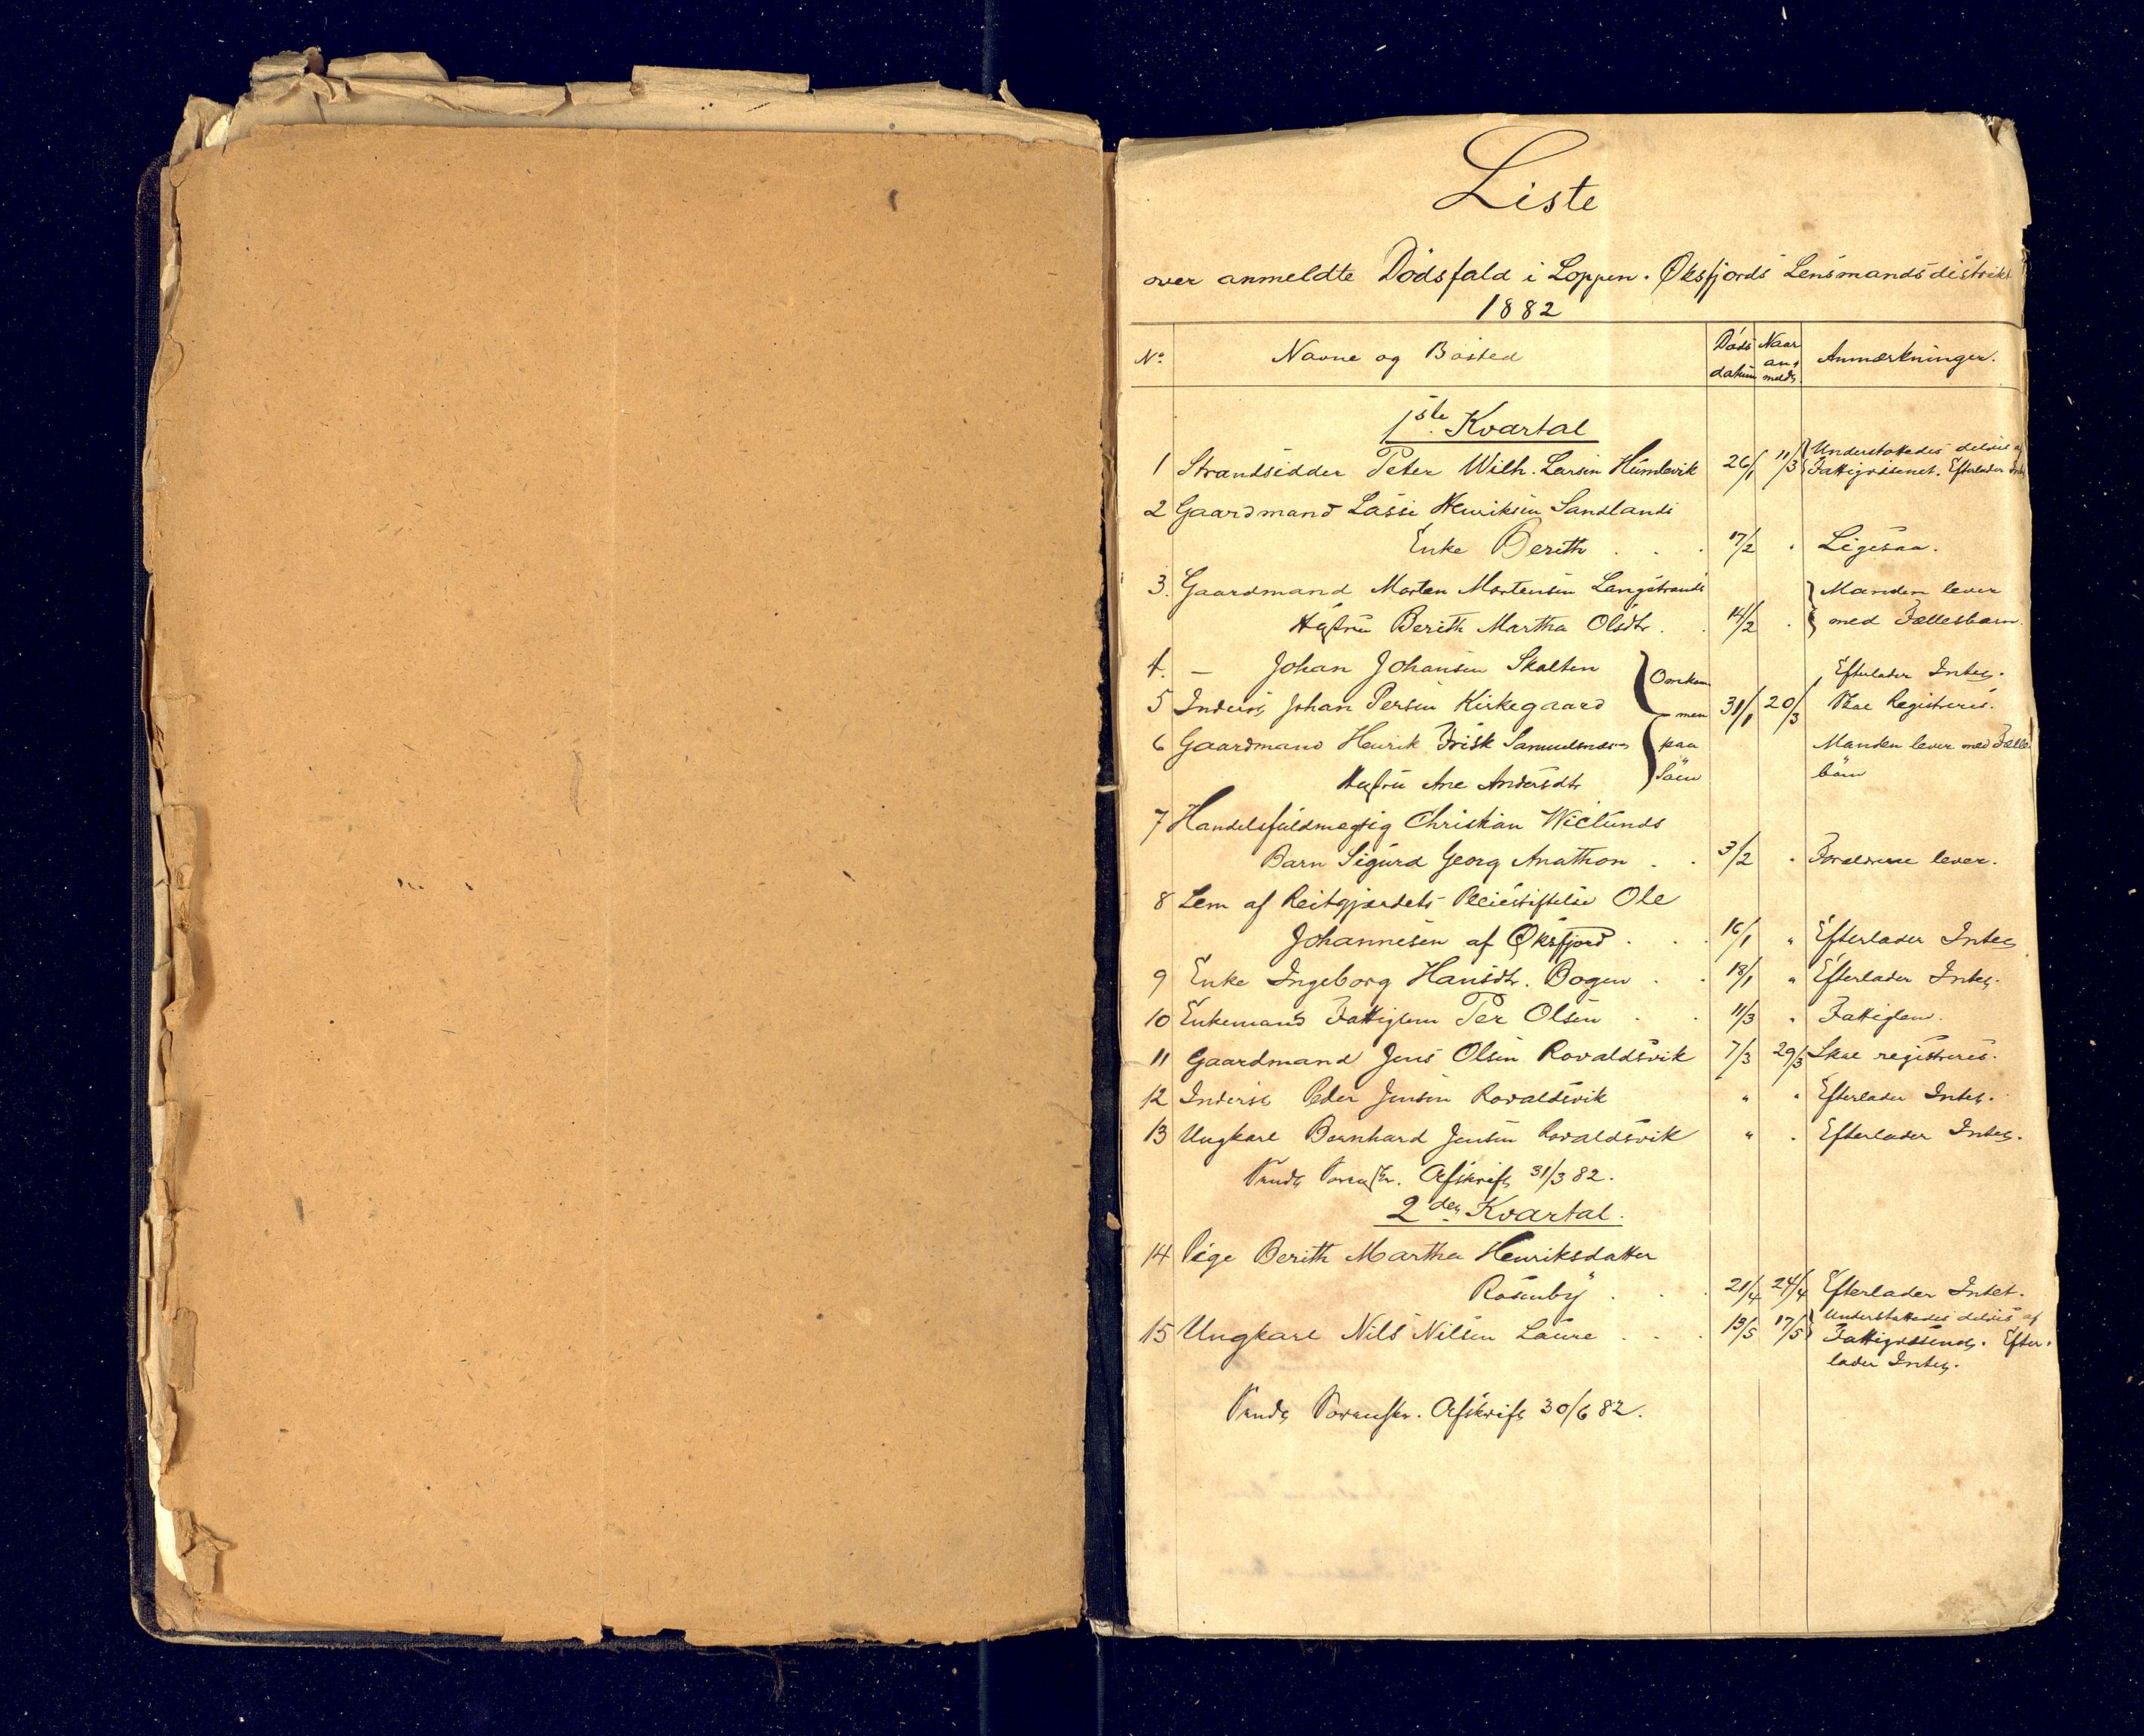 Liste
over anmeldte Dödsfald i Loppen - Øksfjords Lensmandsdistrikt
1882
No Navne og Bosted Döds datum Naar anmeldt Anmærkninger.
1ste Kvartal
1 Strandsidder Peter Wilh. Larsen 26/1 11/3 Understøttedes delvis af Fattigvæsenet. Efterlader Intet
2 Gaardmand Lasse Henriksen Sandlands
Enke Berith . . . 17/2 " Ligesaa.
3. Gaardmand Morten Mortensen Langstrands Manden lever
Hustru Berith Martha Olsdtr . . 14/2 " med Fællesbarn.
4. — Johan Johansen Skalten Efterlader Intet.
5 Inderst Johan Persen Kirkegaard Omkommen paa Söen 31/1 20/3 Skal Registreres.
6 Gaardmand Henrik Frisk Samuelsens Manden lever med Fælles
Hustru Ane Andersdtr börn
7 Handelsfuldmægtig Christian Wiclunds
Barn Sigurd Georg Anathon . . 3/2 " Forældrene lever.
8 Lem af Reitgjærdets Pleiestiftelse Ole
Johannesen af Øksfjord . . . 16/1 " Efterlader Intet
9 Enke Ingeborg Hansdtr. Bogen . . 18/1 " Efterlader Intet.
10 Enkemand Fattiglem Per Olsen . . 11/3 " Fattiglem.
11 Gaardmand Jens Olsen Rovaldsvik 7/3 29/3 Skal registreres.
12 Inderst Peder Jensen Rovaldsvik " " Efterlader Intet.
13 Ungkarl Bernhard Jensen Rovaldsvik " " Efterlader Intet.
Sendt Sorenskr. Afskrift 31/3 82.
2det Kvartal.
14 Pige Berith Martha Henriksdatter
21/4 24/4 Efterlader Intet.
15 Ungkarl Nils Nilsen 13/5 17/5 Understøttedes delvis af
Fattigvæsenet. Efter-
lader Intet.
Sendt Sorenskr. Afskrift 30/6 82.